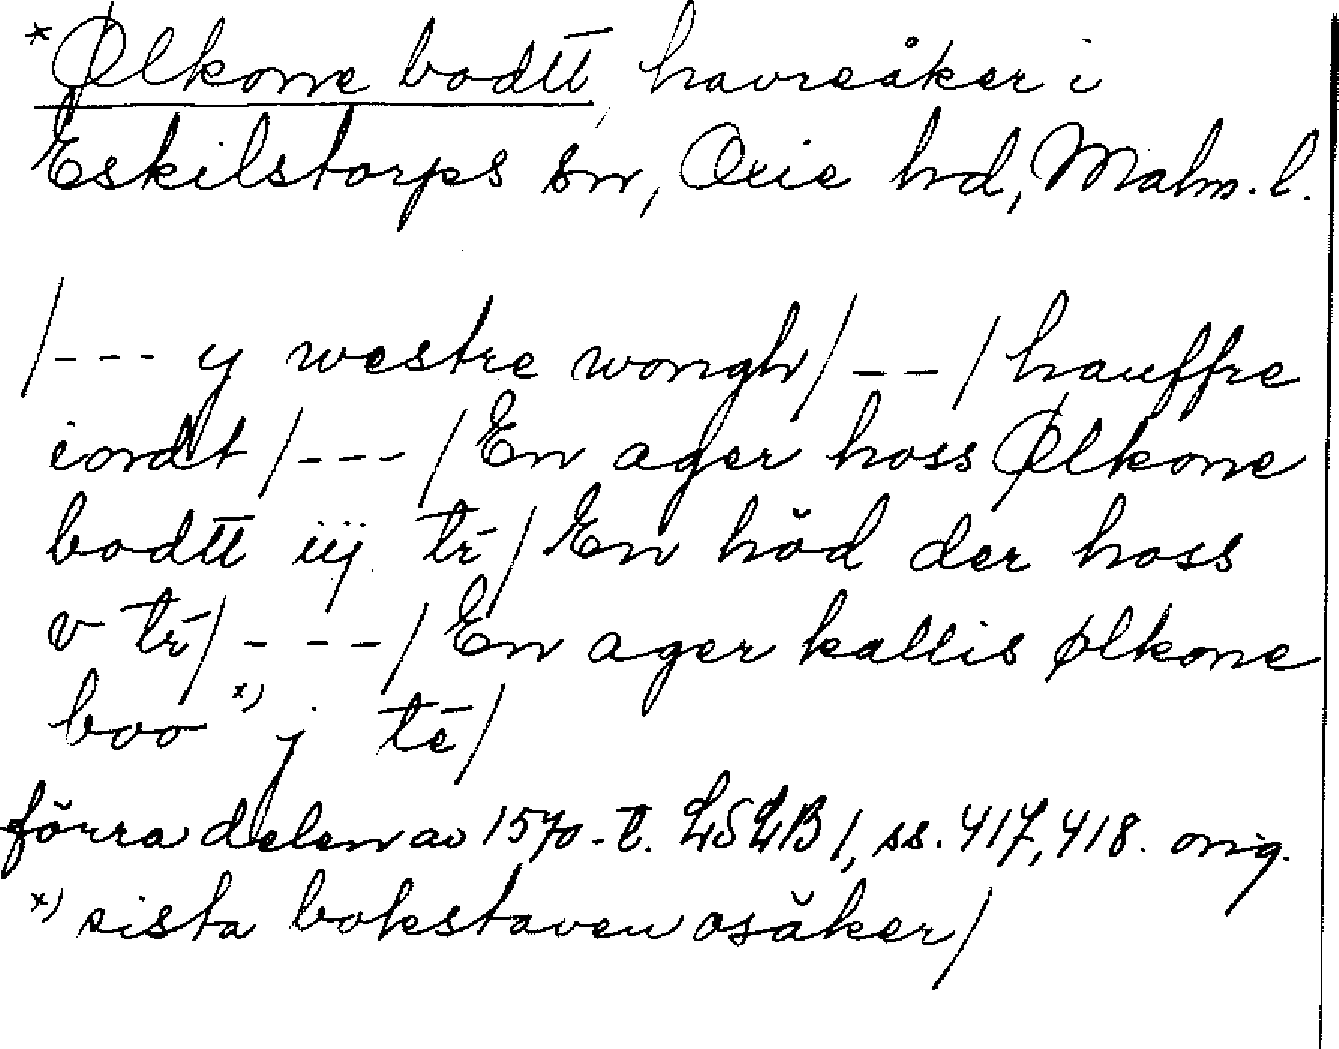 *Ølkone bodtt, havreåker i
Eskilstorps sn, Oxie hd, Malm. l.
/--- y westre wongh/--/hauffre
iordt/---/En ager hoss Ølkone
bodtt iij tr̄/En höd der hoss
v tr̄/---/En ager kallis ølkone
boo x) j tē/
förra delen av 1570-t. LSLB 1, ss. 417, 418. orig.
x) sista bokstaven osäker/